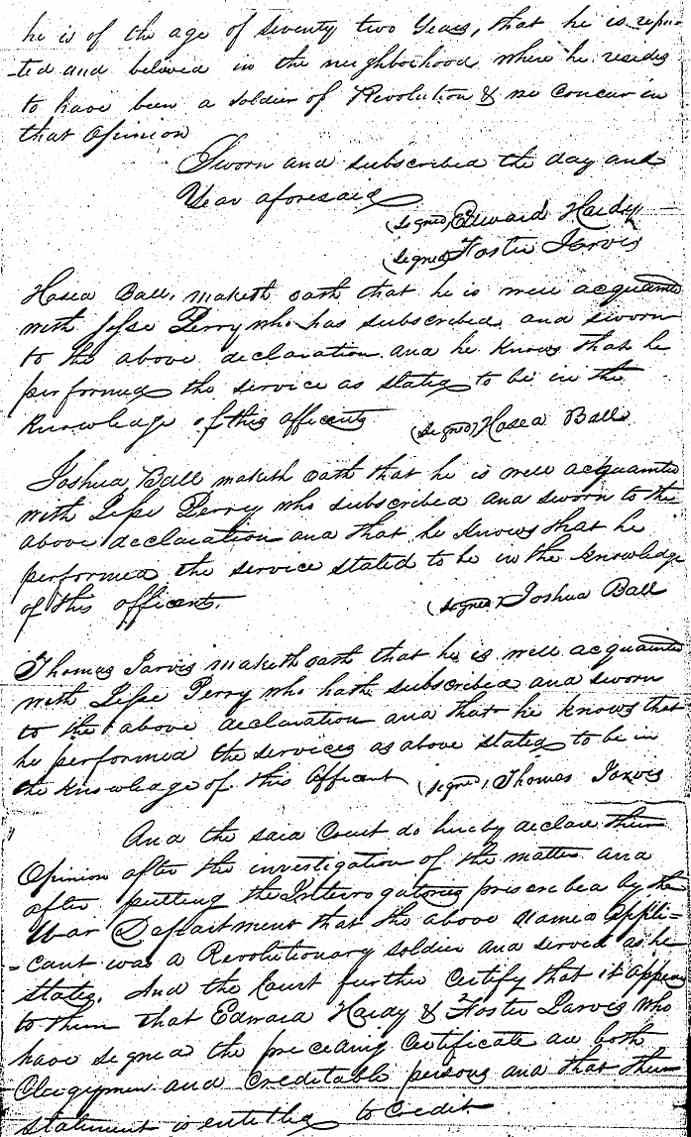 he is of the age of seventy two Years, that he is repu-
-ted and believed in the neighborhood where he resides
to have been a soldier of Revolution & we concur in
that Opinion
Sworn and subscribed the day and
Year aforesaid
(signed) Edward Hardy
(signed) Foster Jarvis
Hosea Ball, maketh oath that he is well acquainted
with Jesse Perry who has subscribed and sworn
to the above declaration and he knows that he
performed the service as stated to be in the
knowledge of this afficents (signed) Hosea Ball
Joshua Ball maketh oath that he is well acquainted
with Jesse Perry who subscribed and sworn to the
above declaration and that he knows that he
performed the service stated to be in the knowledge
of this officents. (signed) Joshua Ball
Thomas Jarvis maketh oath that he is well acquainted
with Jesse Perry who hath subscribed and sworn
to the above declaration and that he knows that
he performed the services as above stated to be in
the knowledge of this afficent (signed, Thomas Jarvis
And the said Court do hereby declare their
Opinion after the investigation of the matter and
after putting the Interrogatories prescribed by the
War Department that the above named appli=
=cant was a Revolutionary soldier and served as he
states. And the Court further Certify that it appears
to them that Edward Hardy & Foster Jarvis who
have signed the preceding Certificate are both
Clergymen and Creditable persons and that their
statement is entitled to credit